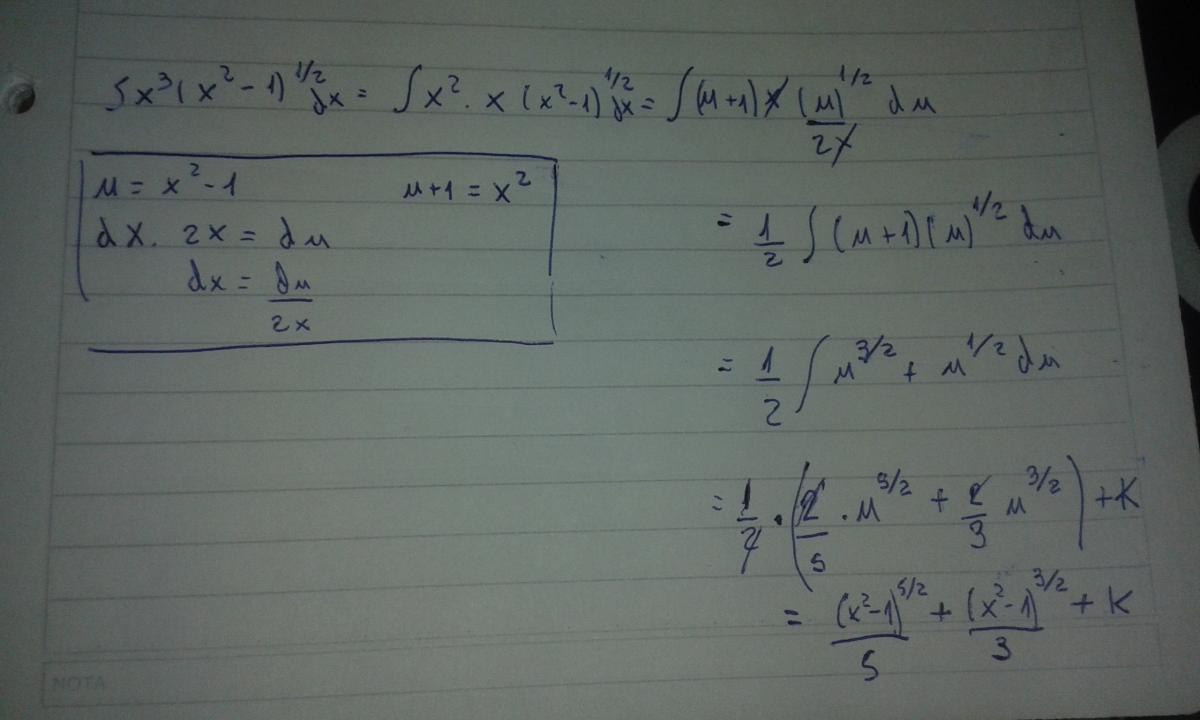 ∫x³(x²-1)^1/2 dx = ∫x². x (x²-1)^1/2 dx = ∫(u+1) x (u)^1/2/2x du
u = x²-1 u+1 = x²
dx. 2x = du
dx = du/2x
= 1/2 ∫(u+1)(u)^1/2 du
= 1/2 ∫ u^3/2 + u^1/2 du
= 1/2 . (2/5 . u^5/2 + 2/3 u^3/2) + K
= (x²-1)^5/2/5 + (x²-1)^3/2/3 + K
NOTA